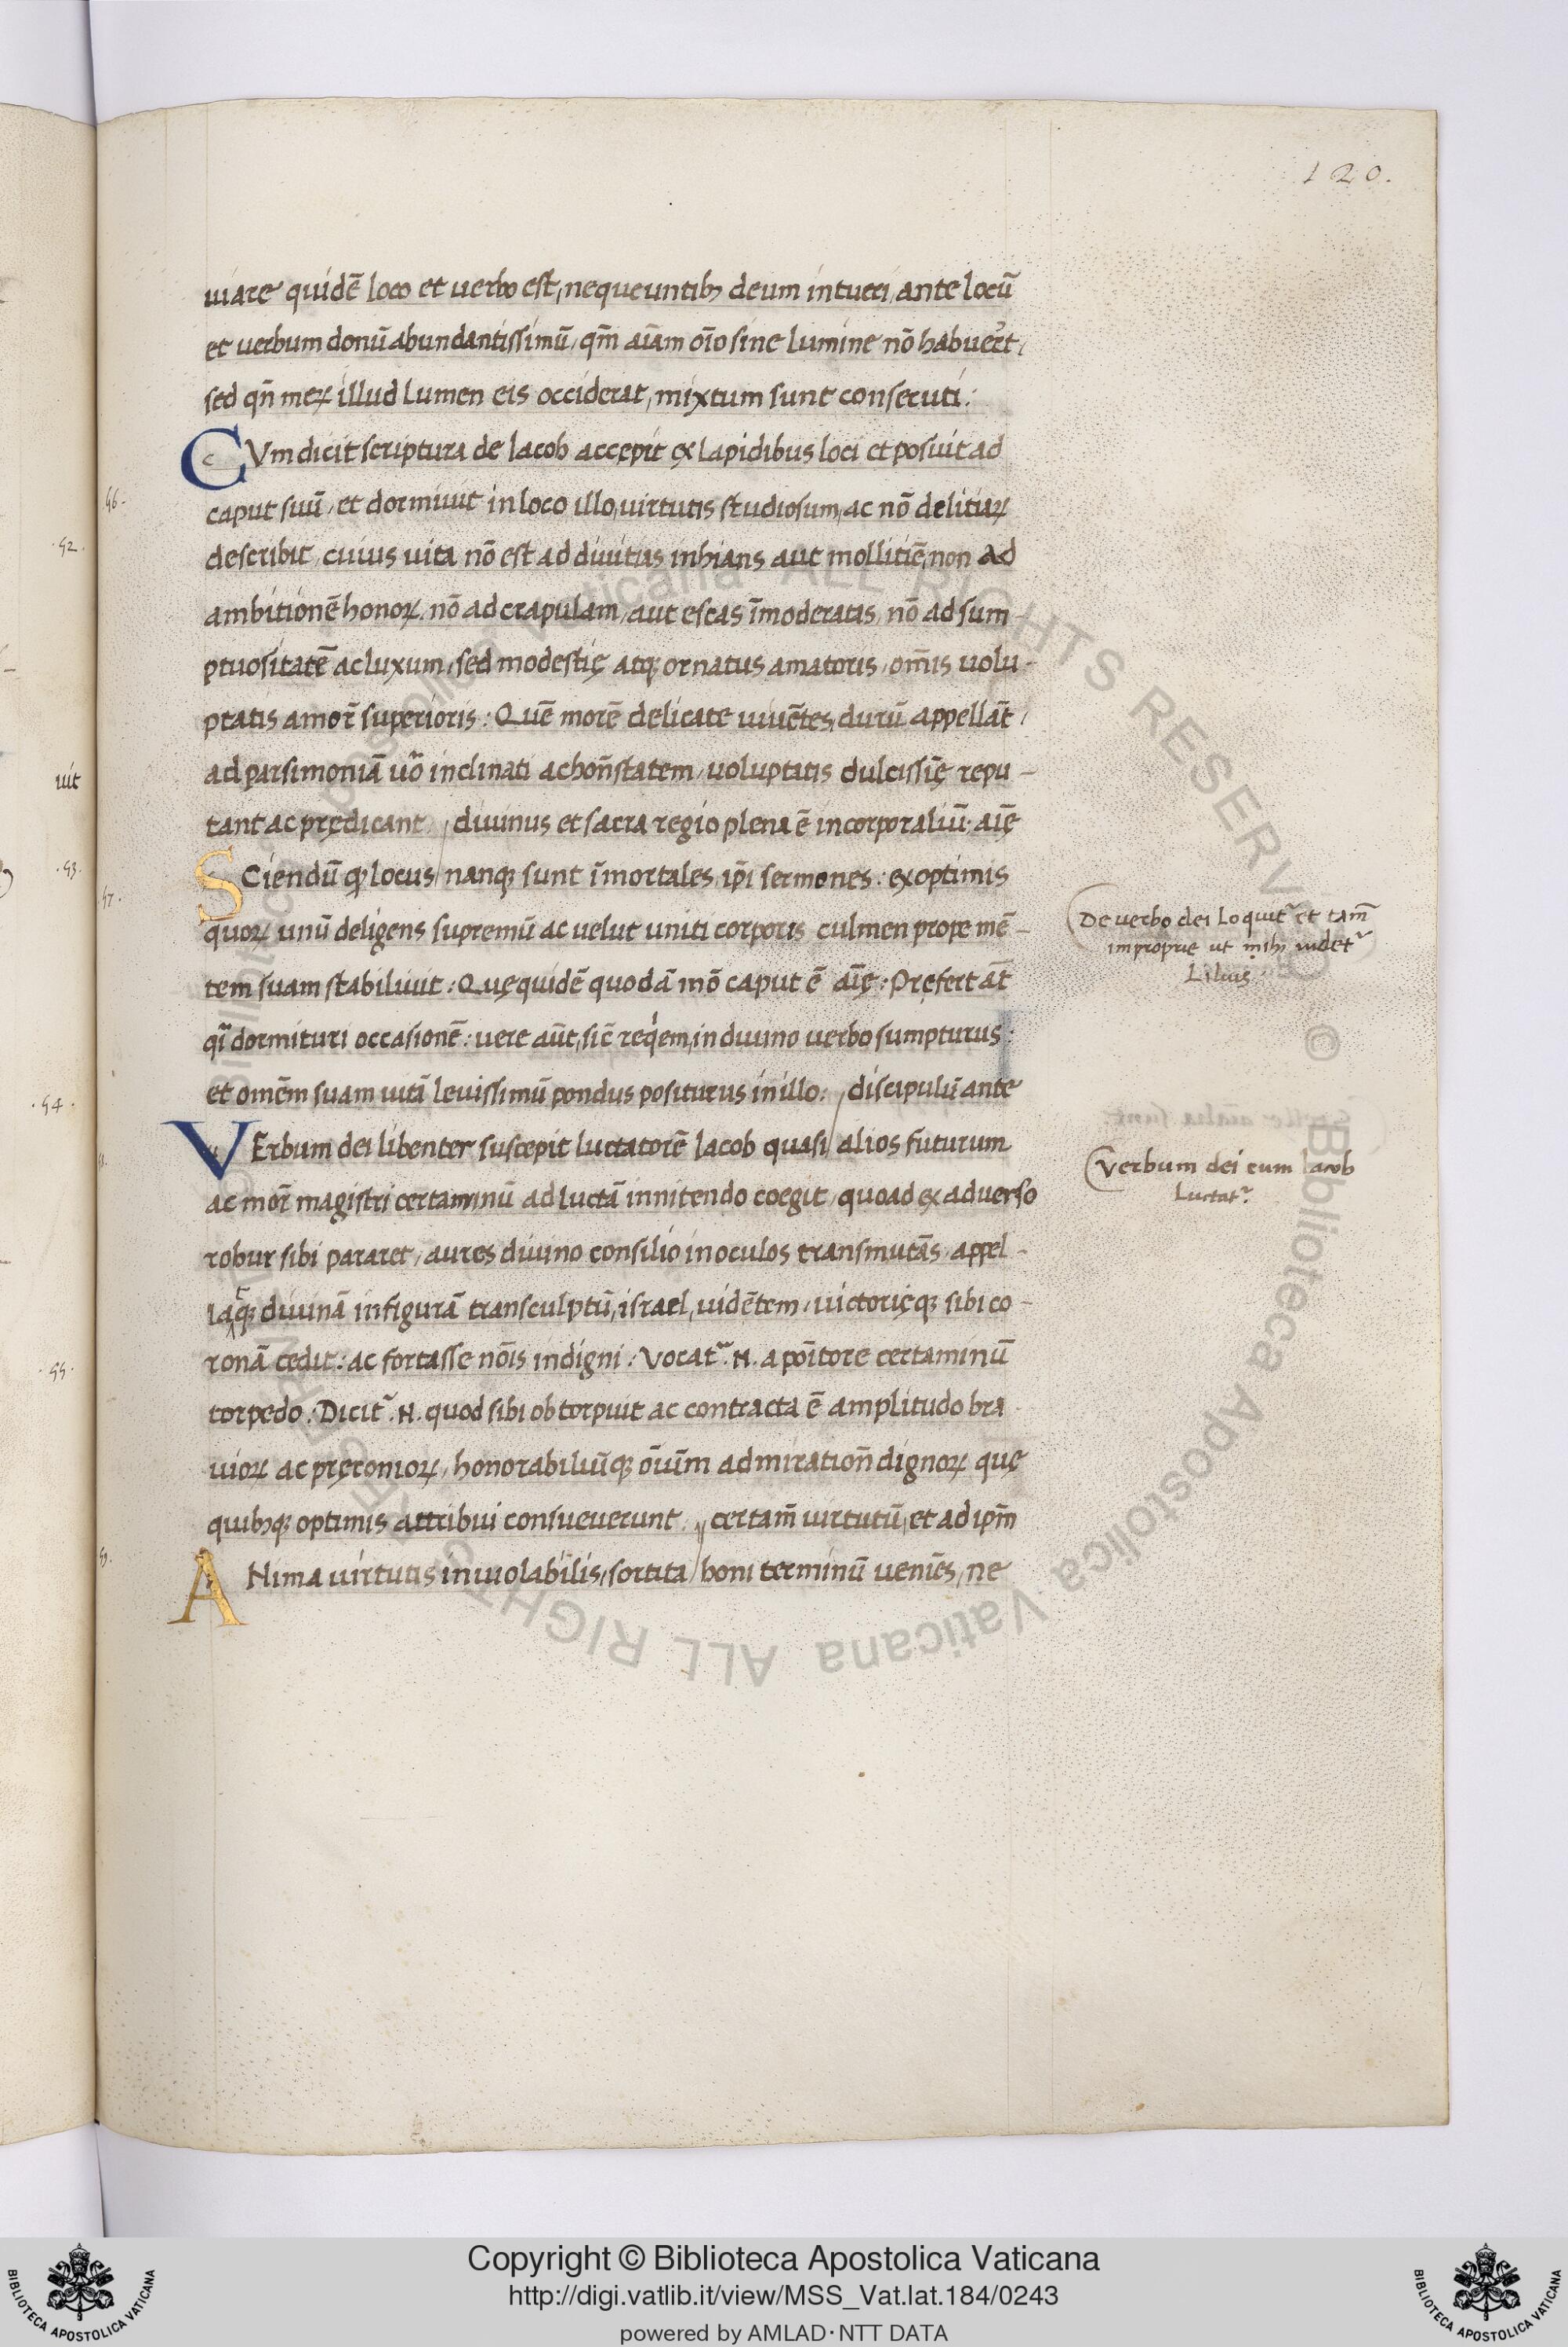 120.
uiare quidē loco et uerbo est, nequeuntibꝫ deum intueri, ante locū
et uerbum donū abundantissimū, qm̄ aīam oīo sine lumine nō habuer̄t,
sed qn̄ merꝝ illud lumen eis occiderat, mixtum sunt consecuti:
CVm dicit scriptura de Iacob accępit ex lapidibus loci et posuit ad
56.
caput suū, et dormiuit in loco illo, uirtutis studiosum, ac nō delitiaꝝ
.52.
describit, cuius uita nō est ad diuitias inhians aut mollitiē, non ad
ambitionē honoꝝ, nō ad crapulam, aut escas īmoderatas, nō ad sum-
ptuositatē ac luxum, sed modestię atqꝫ ornatus amatoris, om̄is uolu-
ptatis amor̄ superioris: Quē morē delicate uiuētes, durū appellāt,
uit
ad parsimoniā uō inclinati ac hon̄statem, uoluptatis dulcissię repu-
tant ac prędicant. diuinus et sacra regio plena ē incorporaliū. aīę
.53.
SCiendū qꝫ locus nanqꝫ sunt īmortales, ip̄i sermones: ex optimis
57.
quoꝝ unū deligens supremū ac uelut uniti corporis culmen prope mē-
De uerbo dei loquit̄ et tam̄
improprie ut mihi uidet̄
Liluis.
tem suam stabiliuit: Quęquidē quodā mō caput ē aīę: Pręfert āt
qͥ dormituri occasionē: uere aūt, sic̄ reqͥem, in diuino uerbo sumpturus:
et omēm suam uitā leuissimū pondus positurus in illo: discipulū ante
.54.
VErbum dei libenter suscępit luctatorē Iacob quasi alios futurum
Verbum dei cum Iacob
luctat̄.
ac mor̄ magistri certaminū ad luctā innitendo coegit, quoad ex aduerso
robur sibi pararet, aures diuino consilio in oculos transmutās, appel-
latqꝫ diuinā in figurā transculptū, israel, uidētem, uictorięqꝫ sibi co-
ronā cedit: ac fortasse nōis indigni: Vocat̄ .N. a poītore certaminū
.55.
torpedo. Dicit̄ .N. quod sibi obtorpuit ac contracta ē amplitudo bra
uioꝝ ac pręconioꝝ, honorabiliūqꝫ oīum admiration̄ dignoꝝ quę
quibꝫqꝫ optimis attribui consueuerunt. certam̄ uirtutū, et ad ip̄m
59.
ANima uirtutis inuiolabilis, sortita boni terminū ueniēs, ne
Copyright © Biblioteca Apostolica Vaticana
http://digi.vatlib.it/view/MSS_Vat.lat.184/0243
powered by AMLAD·NTT DATA
BIBLIOTECA APOSTOLICA VATICANA
BIBLIOTECA APOSTOLICA VATICANA